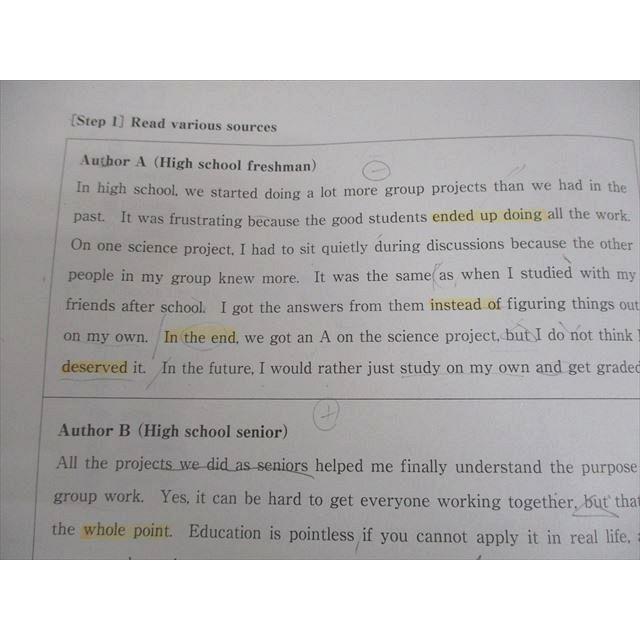 [Step 1] Read various sources
Author A (High school freshman)
In high school, we started doing a lot more group projects than we had in the
past. It was frustrating because the good students ended up doing all the work.
On one science project, I had to sit quietly during discussions because the other
people in my group knew more. It was the same as when I studied with my
friends after school. I got the answers from them instead of figuring things out
on my own. In the end, we got an A on the science project, but I do not think I
deserved it. In the future, I would rather just study on my own and get graded
Author B (High school senior)
All the projects we did as seniors helped me finally understand the purpose
group work. Yes, it can be hard to get everyone working together, but that
the whole point. Education is pointless if you cannot apply it in real life,